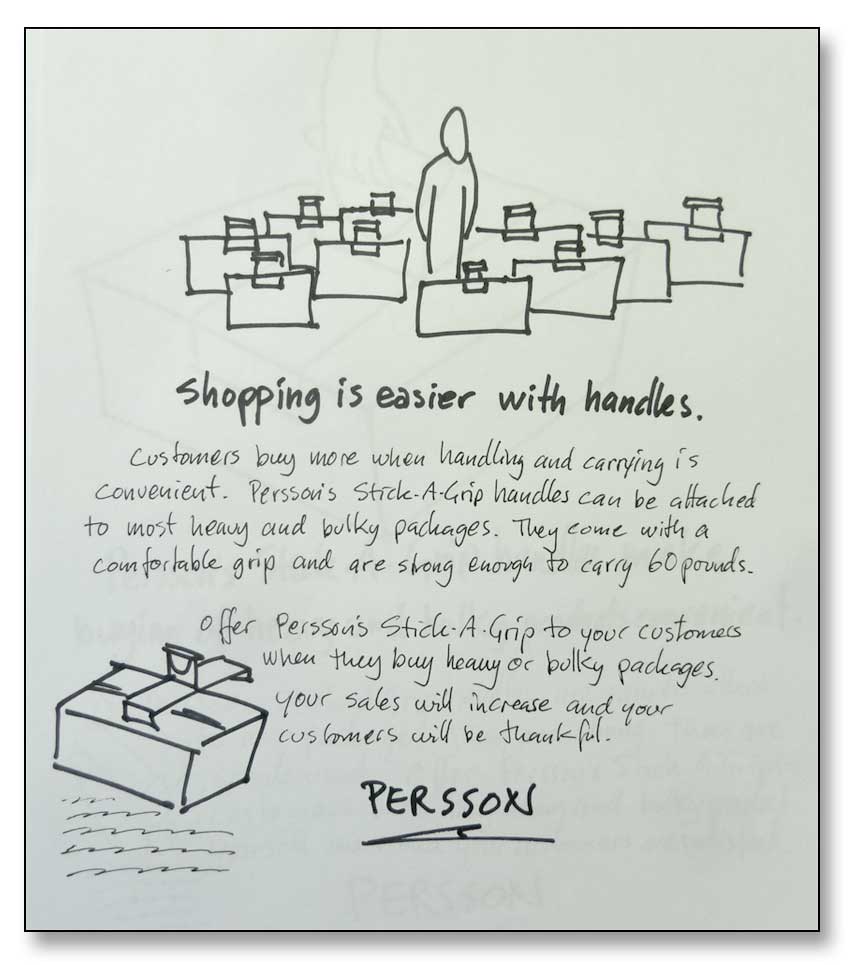 Shopping is easier with handles.
Customers buy more when handling and carrying is
convenient. Persson's Stick-A-Grip handles can be attached
to most heavy and bulky packages. They come with a
comfortable grip and are strong enough to carry 60 pounds.
Offer Persson's Stick-A-Grip to your customers
when they buy heavy or bulky packages.
Your sales will increase and your
customers will be thankful.
PERSSON